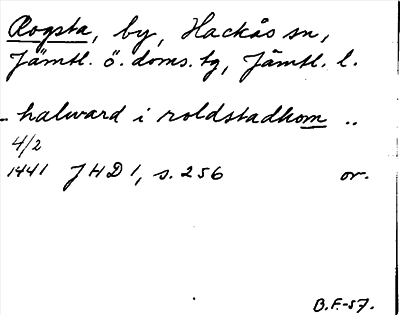 Rogsta, by, Hackås sn,
Jämtl. ö. doms. tg, Jämtl. l.
- halward i roldstadhom ..
4/2
1441 JHD 1, s. 256 or.
B.F.-57.